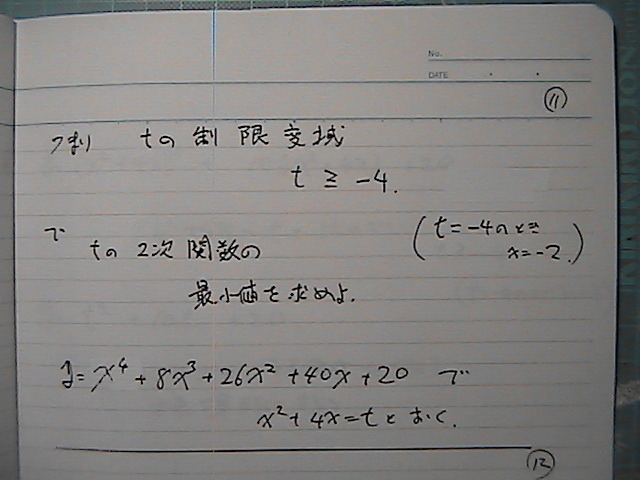 No.
DATE
⑪
つまり tの制限変域
t ≧ -4.
で
(t=-4のとき
x=-2.)
tの2次関数の
最小値を求めよ.
y=x⁴+8x³+26x²+40x+20 で
x²+4x=tとおく.
⑫